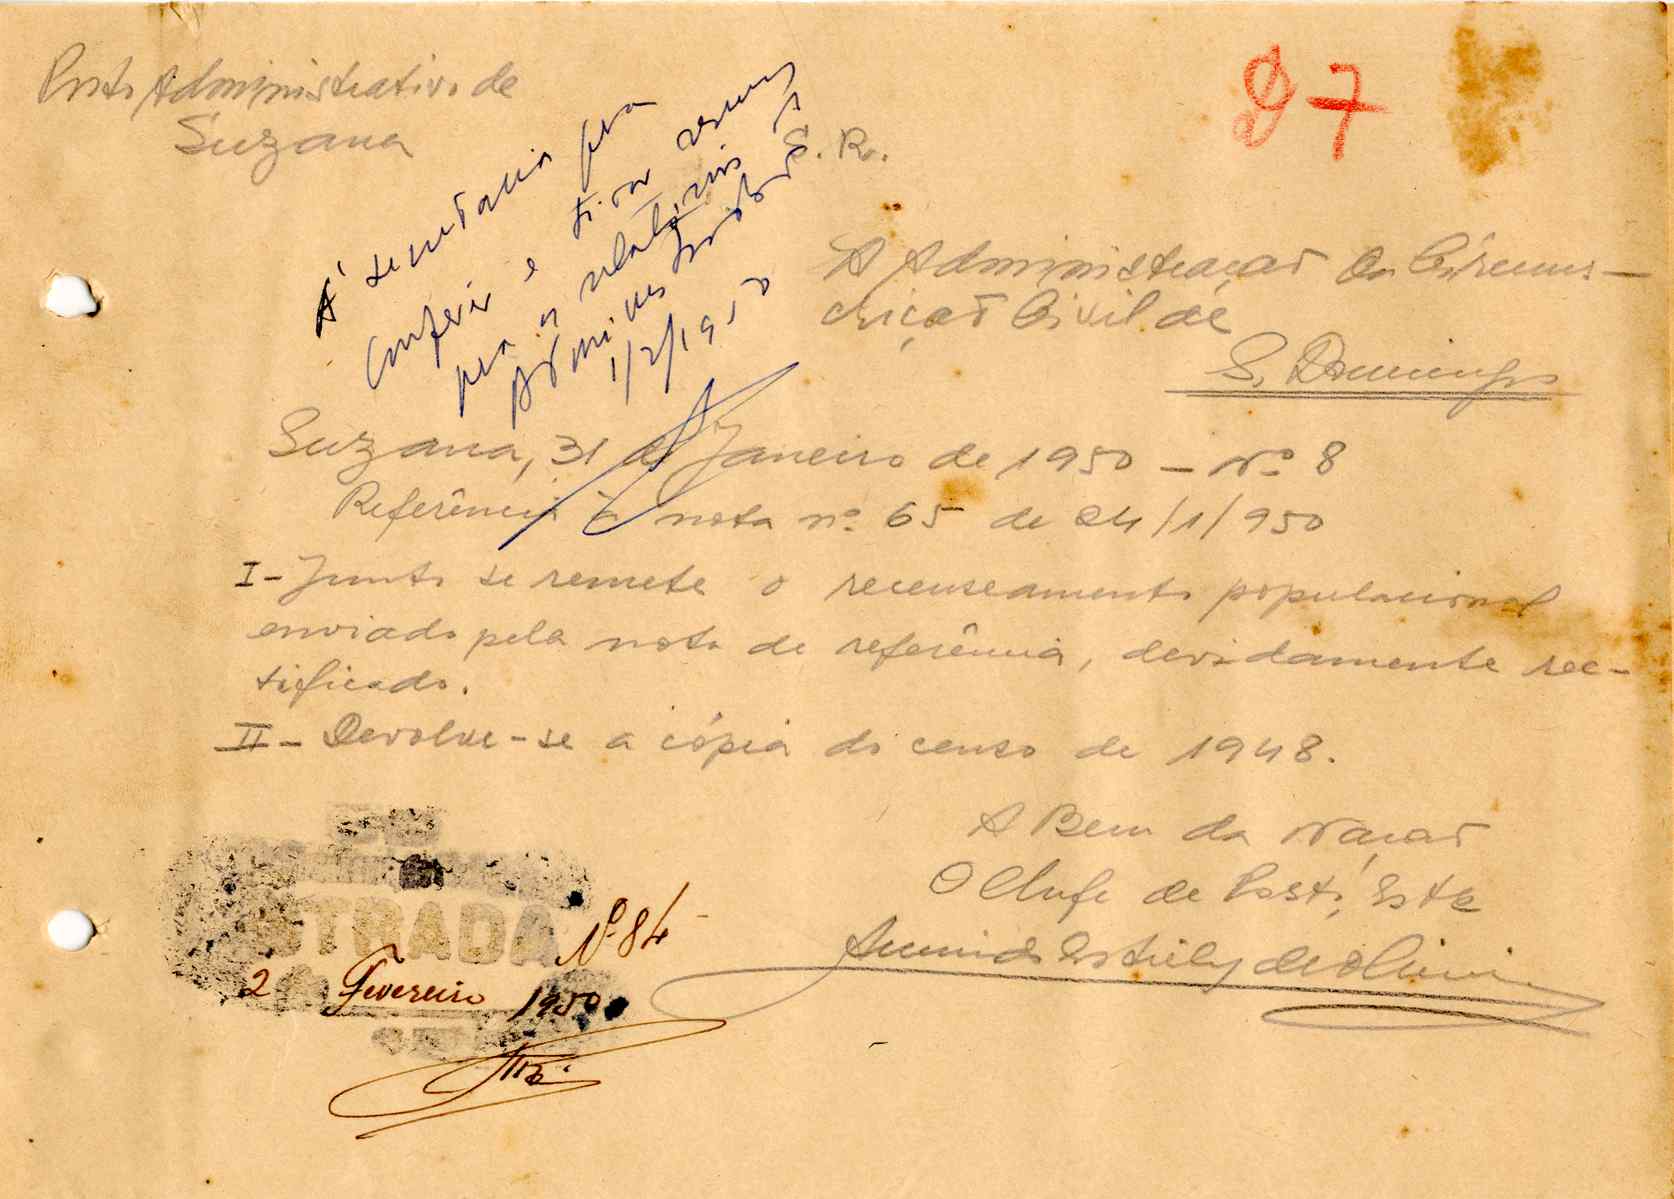 Posto Administrativo de
Suzana
D 7
S. R.
À secretaria para
conferir e tirar
para os relatórios
1/2/1950
À Administração da Circuns-
crição Civil de
S. Domingos
Suzana, 31 de Janeiro de 1950 - Nº 8
Referência à nota nº 65 de 24/1/950
I - Junto se remete o recenseamento populacional
enviado pela nota de referência, devidamente rec-
tificado.
II - Devolve-se a cópia do censo de 1948.
A Bem da Nação
O Chefe de Posto,
ENTRADA
Nº 84
2 Fevereiro 1950